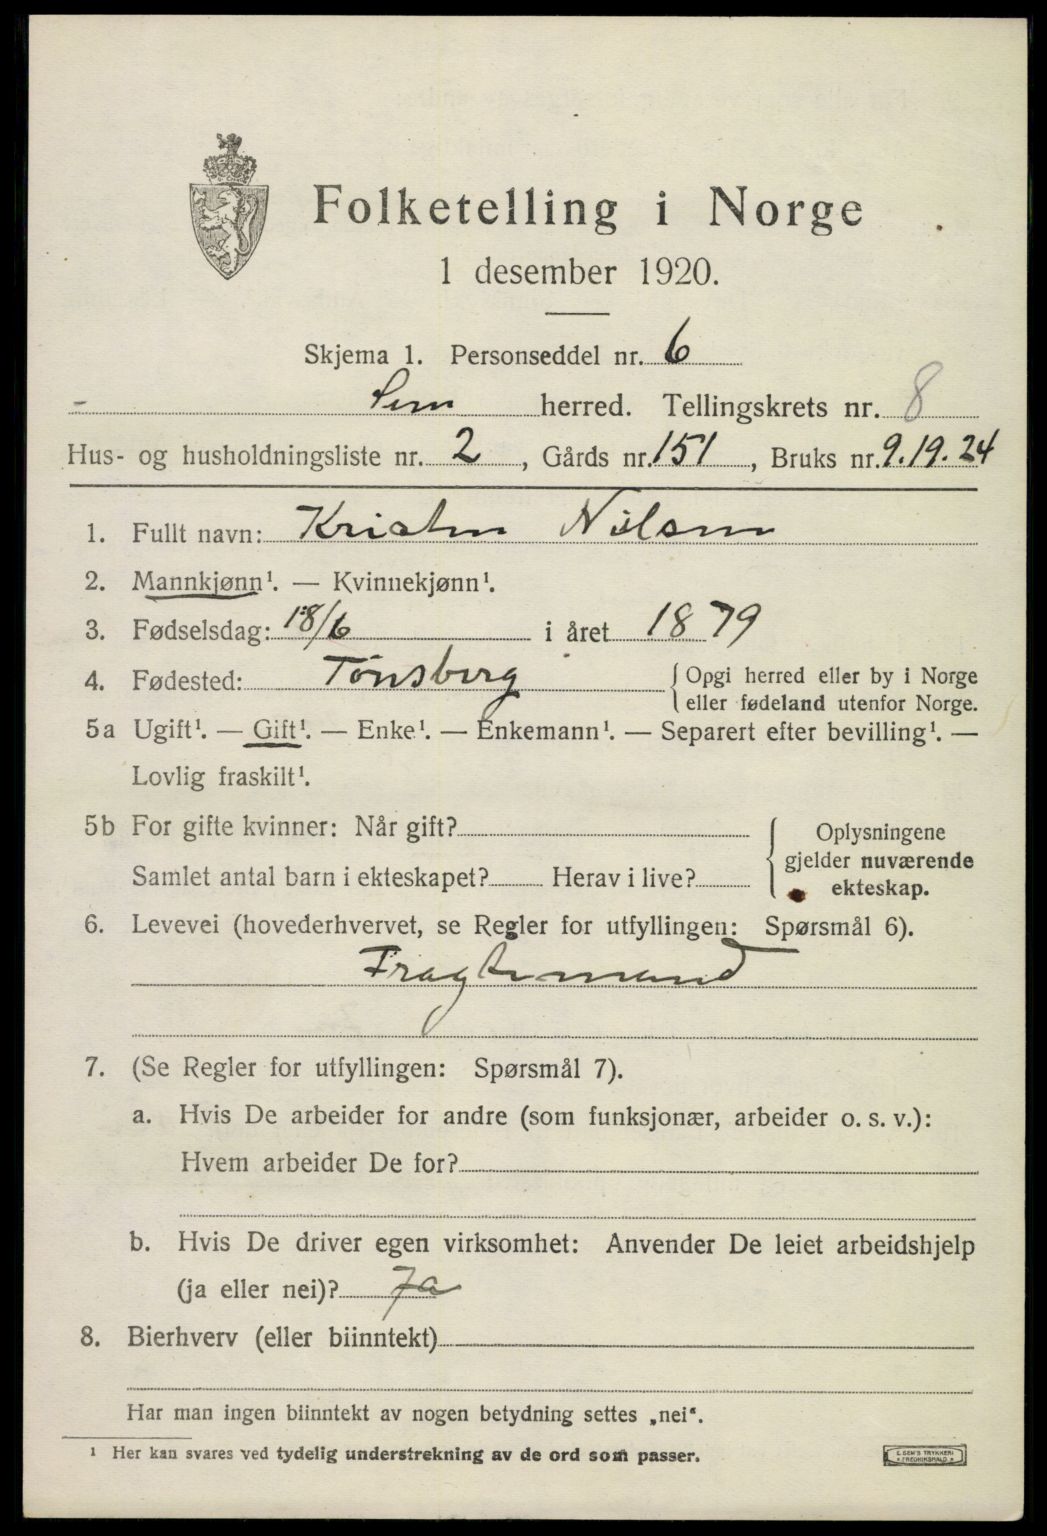 Folketelling i Norge
1 desember 1920.
Skjema 1. Personseddel nr. 6
Sem herred. Tellingskrets nr. 8
Hus- og husholdningsliste nr. 2, Gårds nr. 151, Bruks nr. 9.19.24
1. Fullt navn: Kristen Nilsen
2. Mannkjønn¹. — Kvinnekjønn¹.
3. Fødselsdag: 18/6 i året 1879
4. Fødested: Tønsberg { Opgi herred eller by i Norge
eller fødeland utenfor Norge.
5a Ugift¹. — Gift¹. — Enke¹. — Enkemann¹. — Separert efter bevilling¹. —
Lovlig fraskilt¹.
5b For gifte kvinner: Når gift?
Samlet antal barn i ekteskapet? Herav i live?
{ Oplysningene
gjelder nuværende
ekteskap.
6. Levevei (hovederhvervet, se Regler for utfyllingen: Spørsmål 6).
Fragtemand
7. (Se Regler for utfyllingen: Spørsmål 7).
a. Hvis De arbeider for andre (som funksjonær, arbeider o. s. v.):
Hvem arbeider De for?
b. Hvis De driver egen virksomhet: Anvender De leiet arbeidshjelp
(ja eller nei)? Ja
8. Bierhverv (eller biinntekt)
Har man ingen biinntekt av nogen betydning settes „nei“.
¹ Her kan svares ved tydelig understrekning av de ord som passer.
E. SEM'S TRYKKERI
* FREDRIKSHALD *